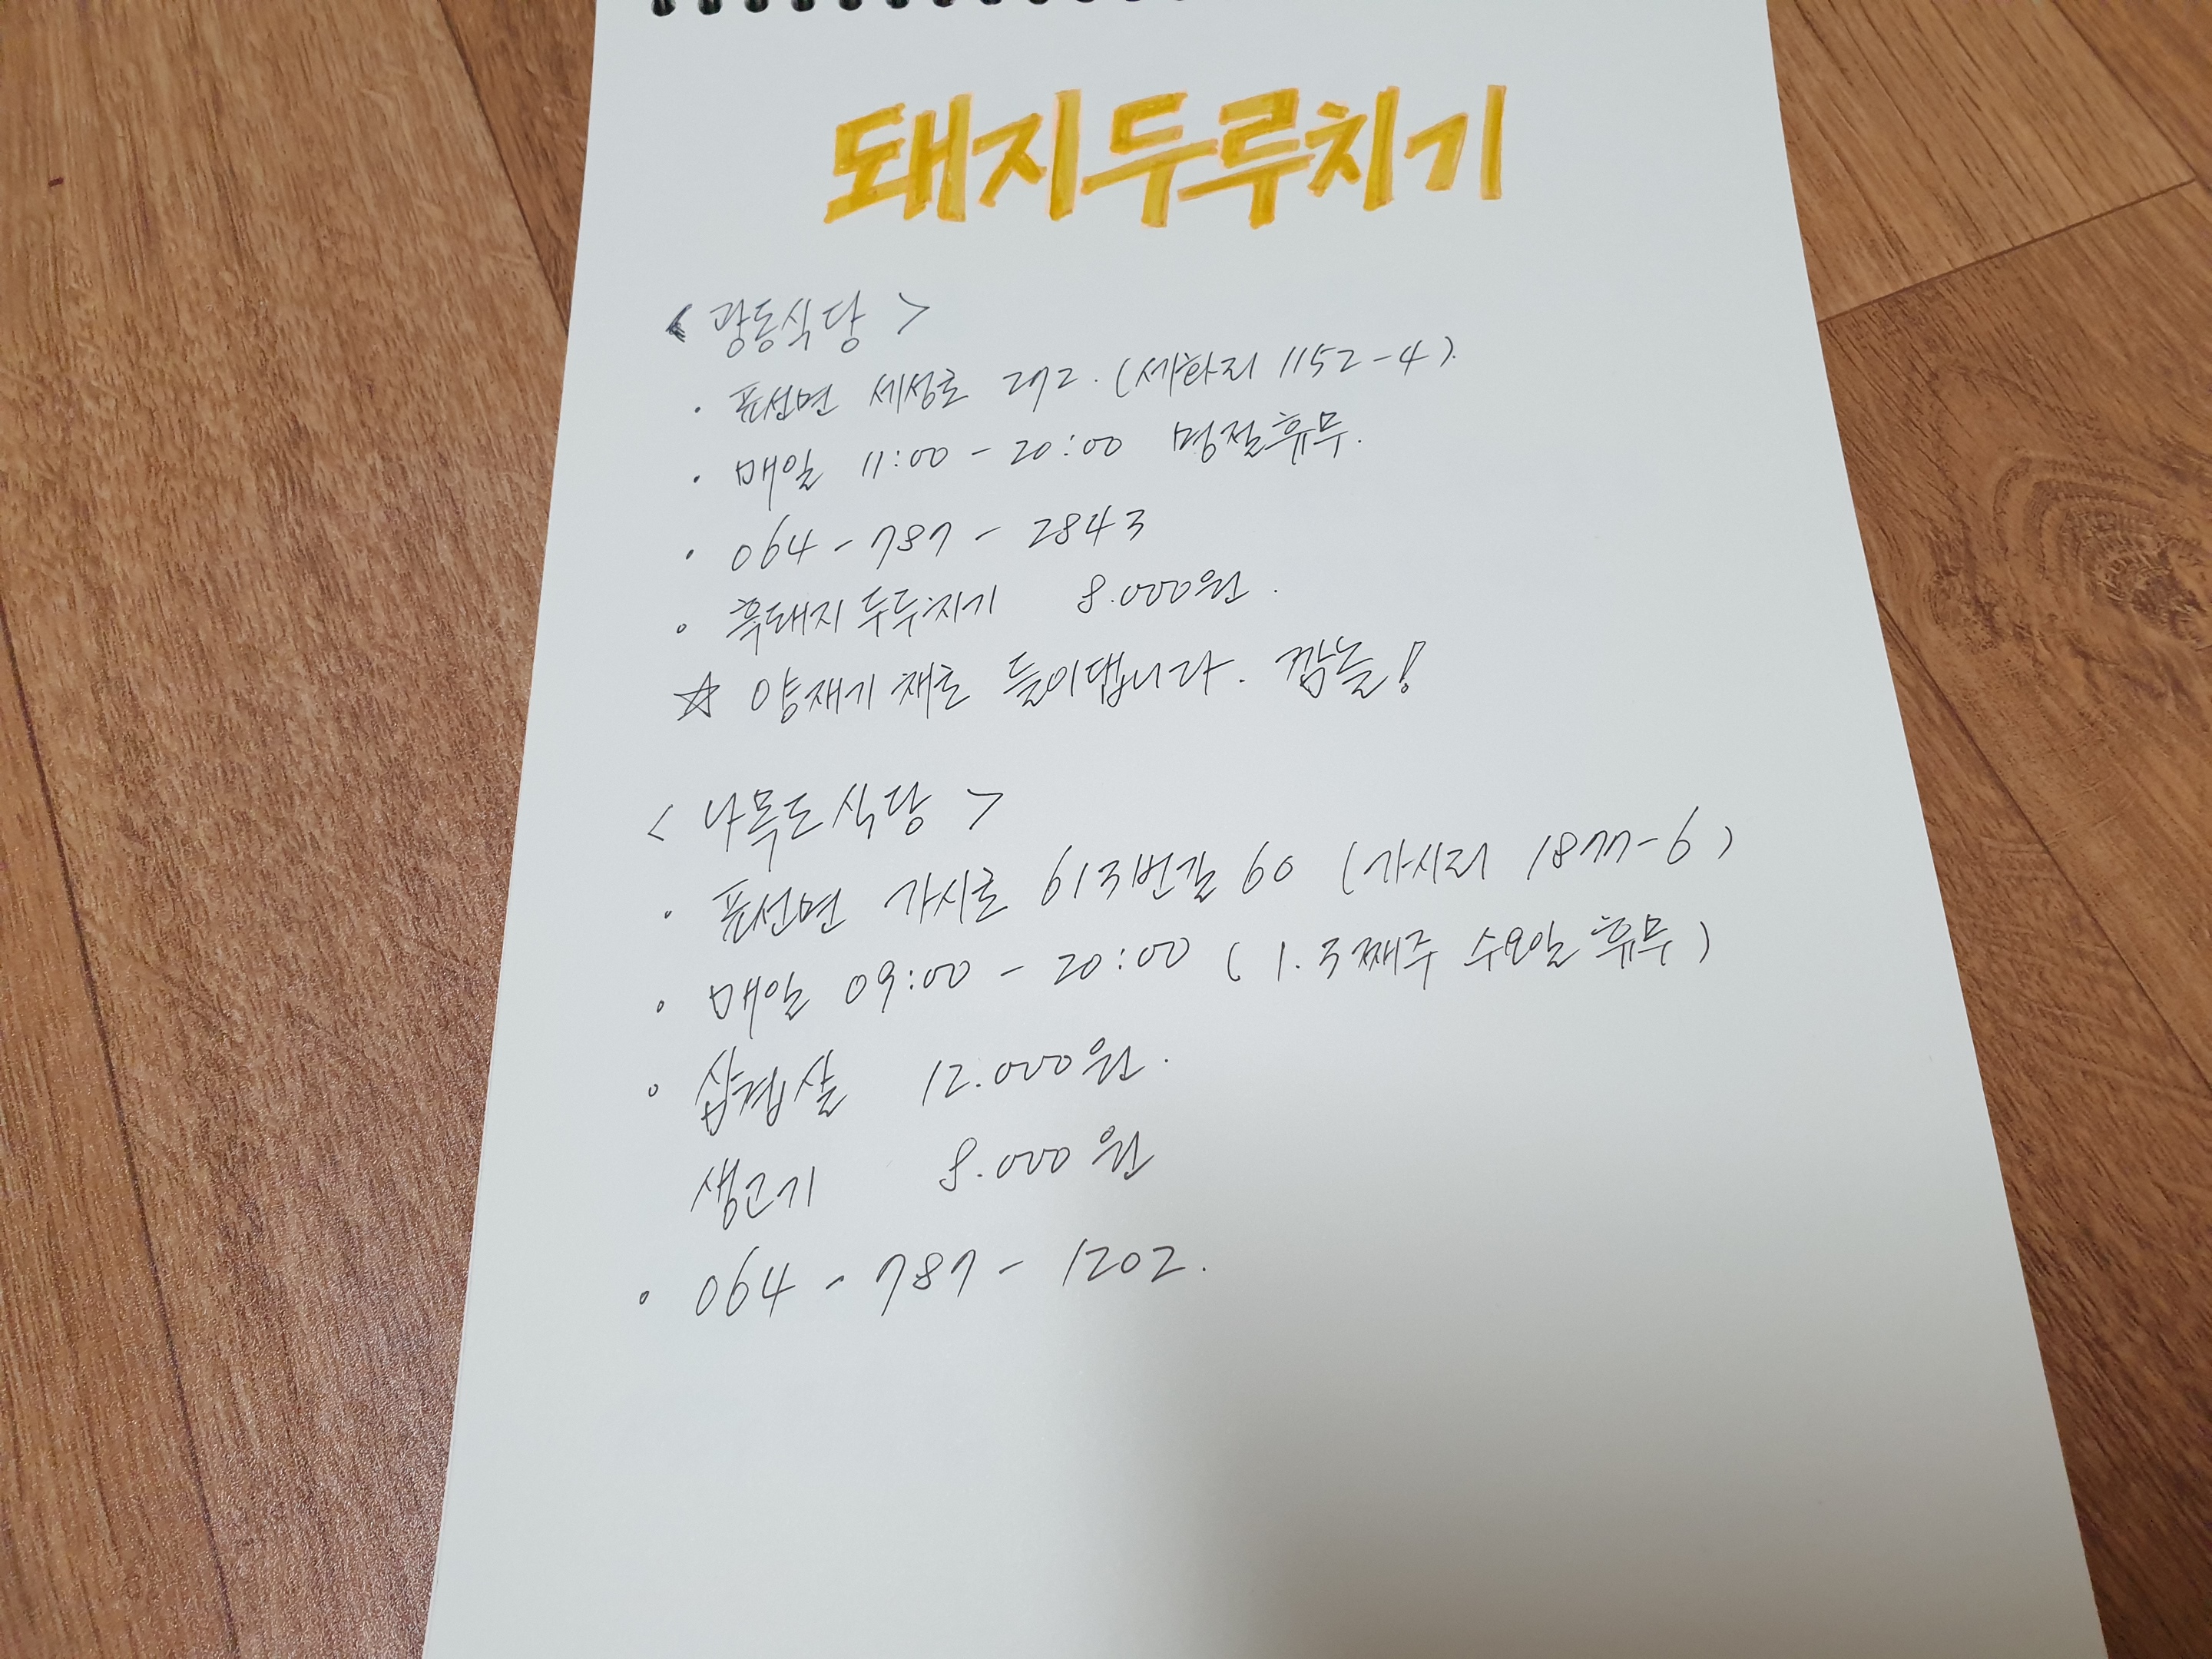 돼지두루치기
< 광동식당 >
· 표선면 세성로 272. (세화리 1152-4).
· 매일 11:00 - 20:00 명절휴무.
· 064 - 787 - 2843
· 흑돼지 두루치기 8.000원.
☆ 양재기 채로 들이댑니다. 깜놀!
< 나목도식당 >
· 표선면 가시로 613번길 60 (가시리 1877-6)
· 매일 09:00 - 20:00 (1.3째주 수요일 휴무)
· 삼겹살 12.000원.
생고기 8.000원
· 064 - 787 - 1202.